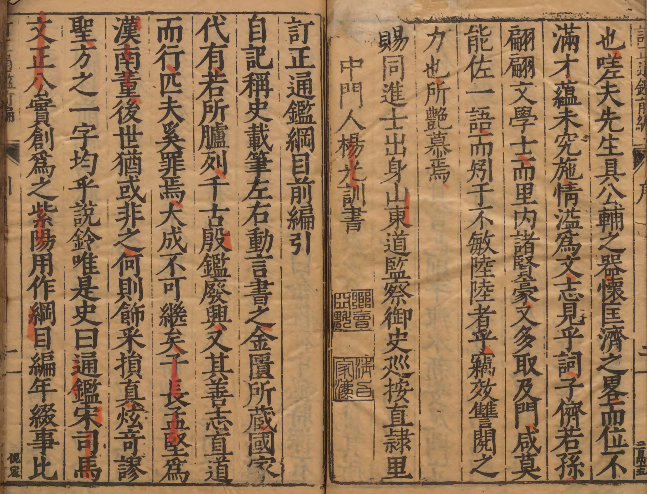 也嗟夫先生具公輔之器懷匡濟之畧而位不
滿才蘊未究施情溢爲文志見乎詞子儕若孫
翩翩文學士而里内諸賢豪又多取及門咸莫
能佐一語而矧于不敏陸陸者乎竊效讐閱之
力也所艷慕焉
賜同進士出身山東道監察御史巡按直隷里
中門人楊光訓書
訂正通鑑綱目前編引
自記稱史載筆左右動言書之金匱所藏國家
代有若所臚列千古殷鑑廢興又其善志直道
而行匹夫奚罪焉大成不可繼矣子長孟堅爲
漢南董後世猶或非之何則飾釆損真炫奇謬
聖方之一字均乎說鈴唯是史曰通鑑宋司馬
文正公實創爲之紫陽用作綱目編年綴事比